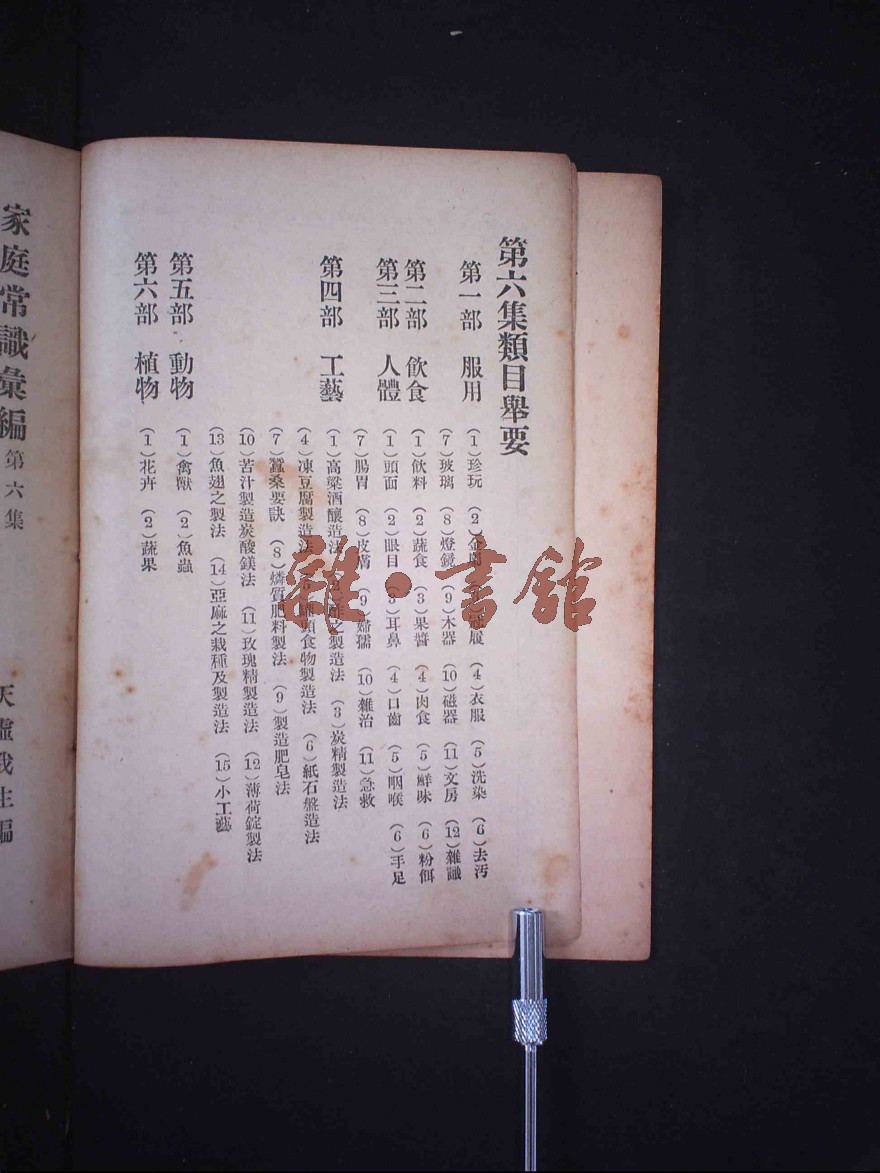 第六集類目舉要
第一部 服用
(1)珍玩 (2)金 (4)衣服 (5)洗染 (6)去汚
(7)玻璃 (8)燈鏡 (9)木器 (10)磁器 (11)文房 (12)雜識
第二部 飲食
(1)飲料 (2)蔬食 (3)果醬 (4)肉食 (5)鮮味 (6)粉餌
第三部 人體
(1)頭面 (2)眼目 (3)耳鼻 (4)口齒 (5)咽喉 (6)手足
(7)腸胃 (8)皮膚 (9)婦孺 (10)雜治 (11)急救
第四部 工藝
(1)高粱酒釀造法 之製造法 (3)炭精製造法
(4)凍豆腐製造法 頭食物製造法 (6)紙石盤造法
(7)蠶桑要訣 (8)燐質肥料製法 (9)製造肥皂法
(10)苦汁製造炭酸鎂法 (11)玫瑰精製造法 (12)薄荷錠製法
(13)魚翅之製法 (14)亞麻之栽種及製造法 (15)小工藝
第五部 動物
(1)禽獸 (2)魚蟲
第六部 植物
(1)花卉 (2)蔬果
家庭常識彙編 第六集
天虛我生編
雜·書館